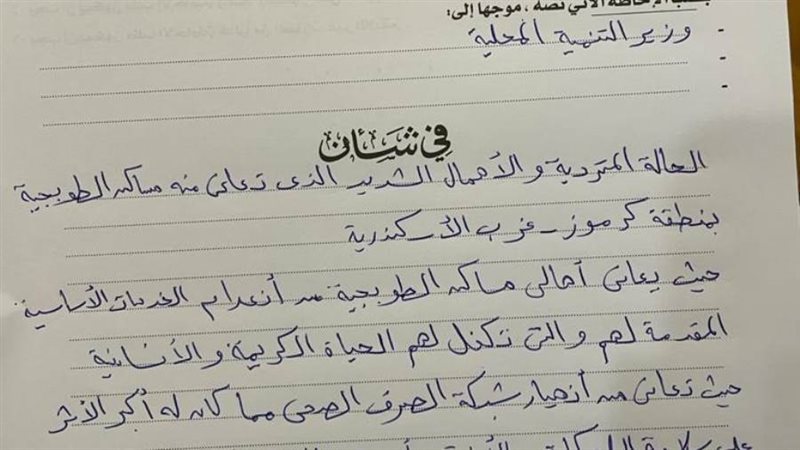 الإحاطة الآتي نصه ، موجها إلى:
- وزير التنمية المحلية
-
-
في شأن
الحالة المتردية و الأهمال الشديد الذى تعانى منه مساكن الطوبجية
بمنطقة كرموز - غرب الأسكندرية
حيث يعانى أهالى مساكن الطوبجية من أنعدام الخدمات الأساسية
المقدمة لهم و التى تكفل لهم الحياة الكريمة و الأنسانية
حيث تعانى من أنهيار شبكة الصرف الصحى مما كان له أكبر الأثر
على